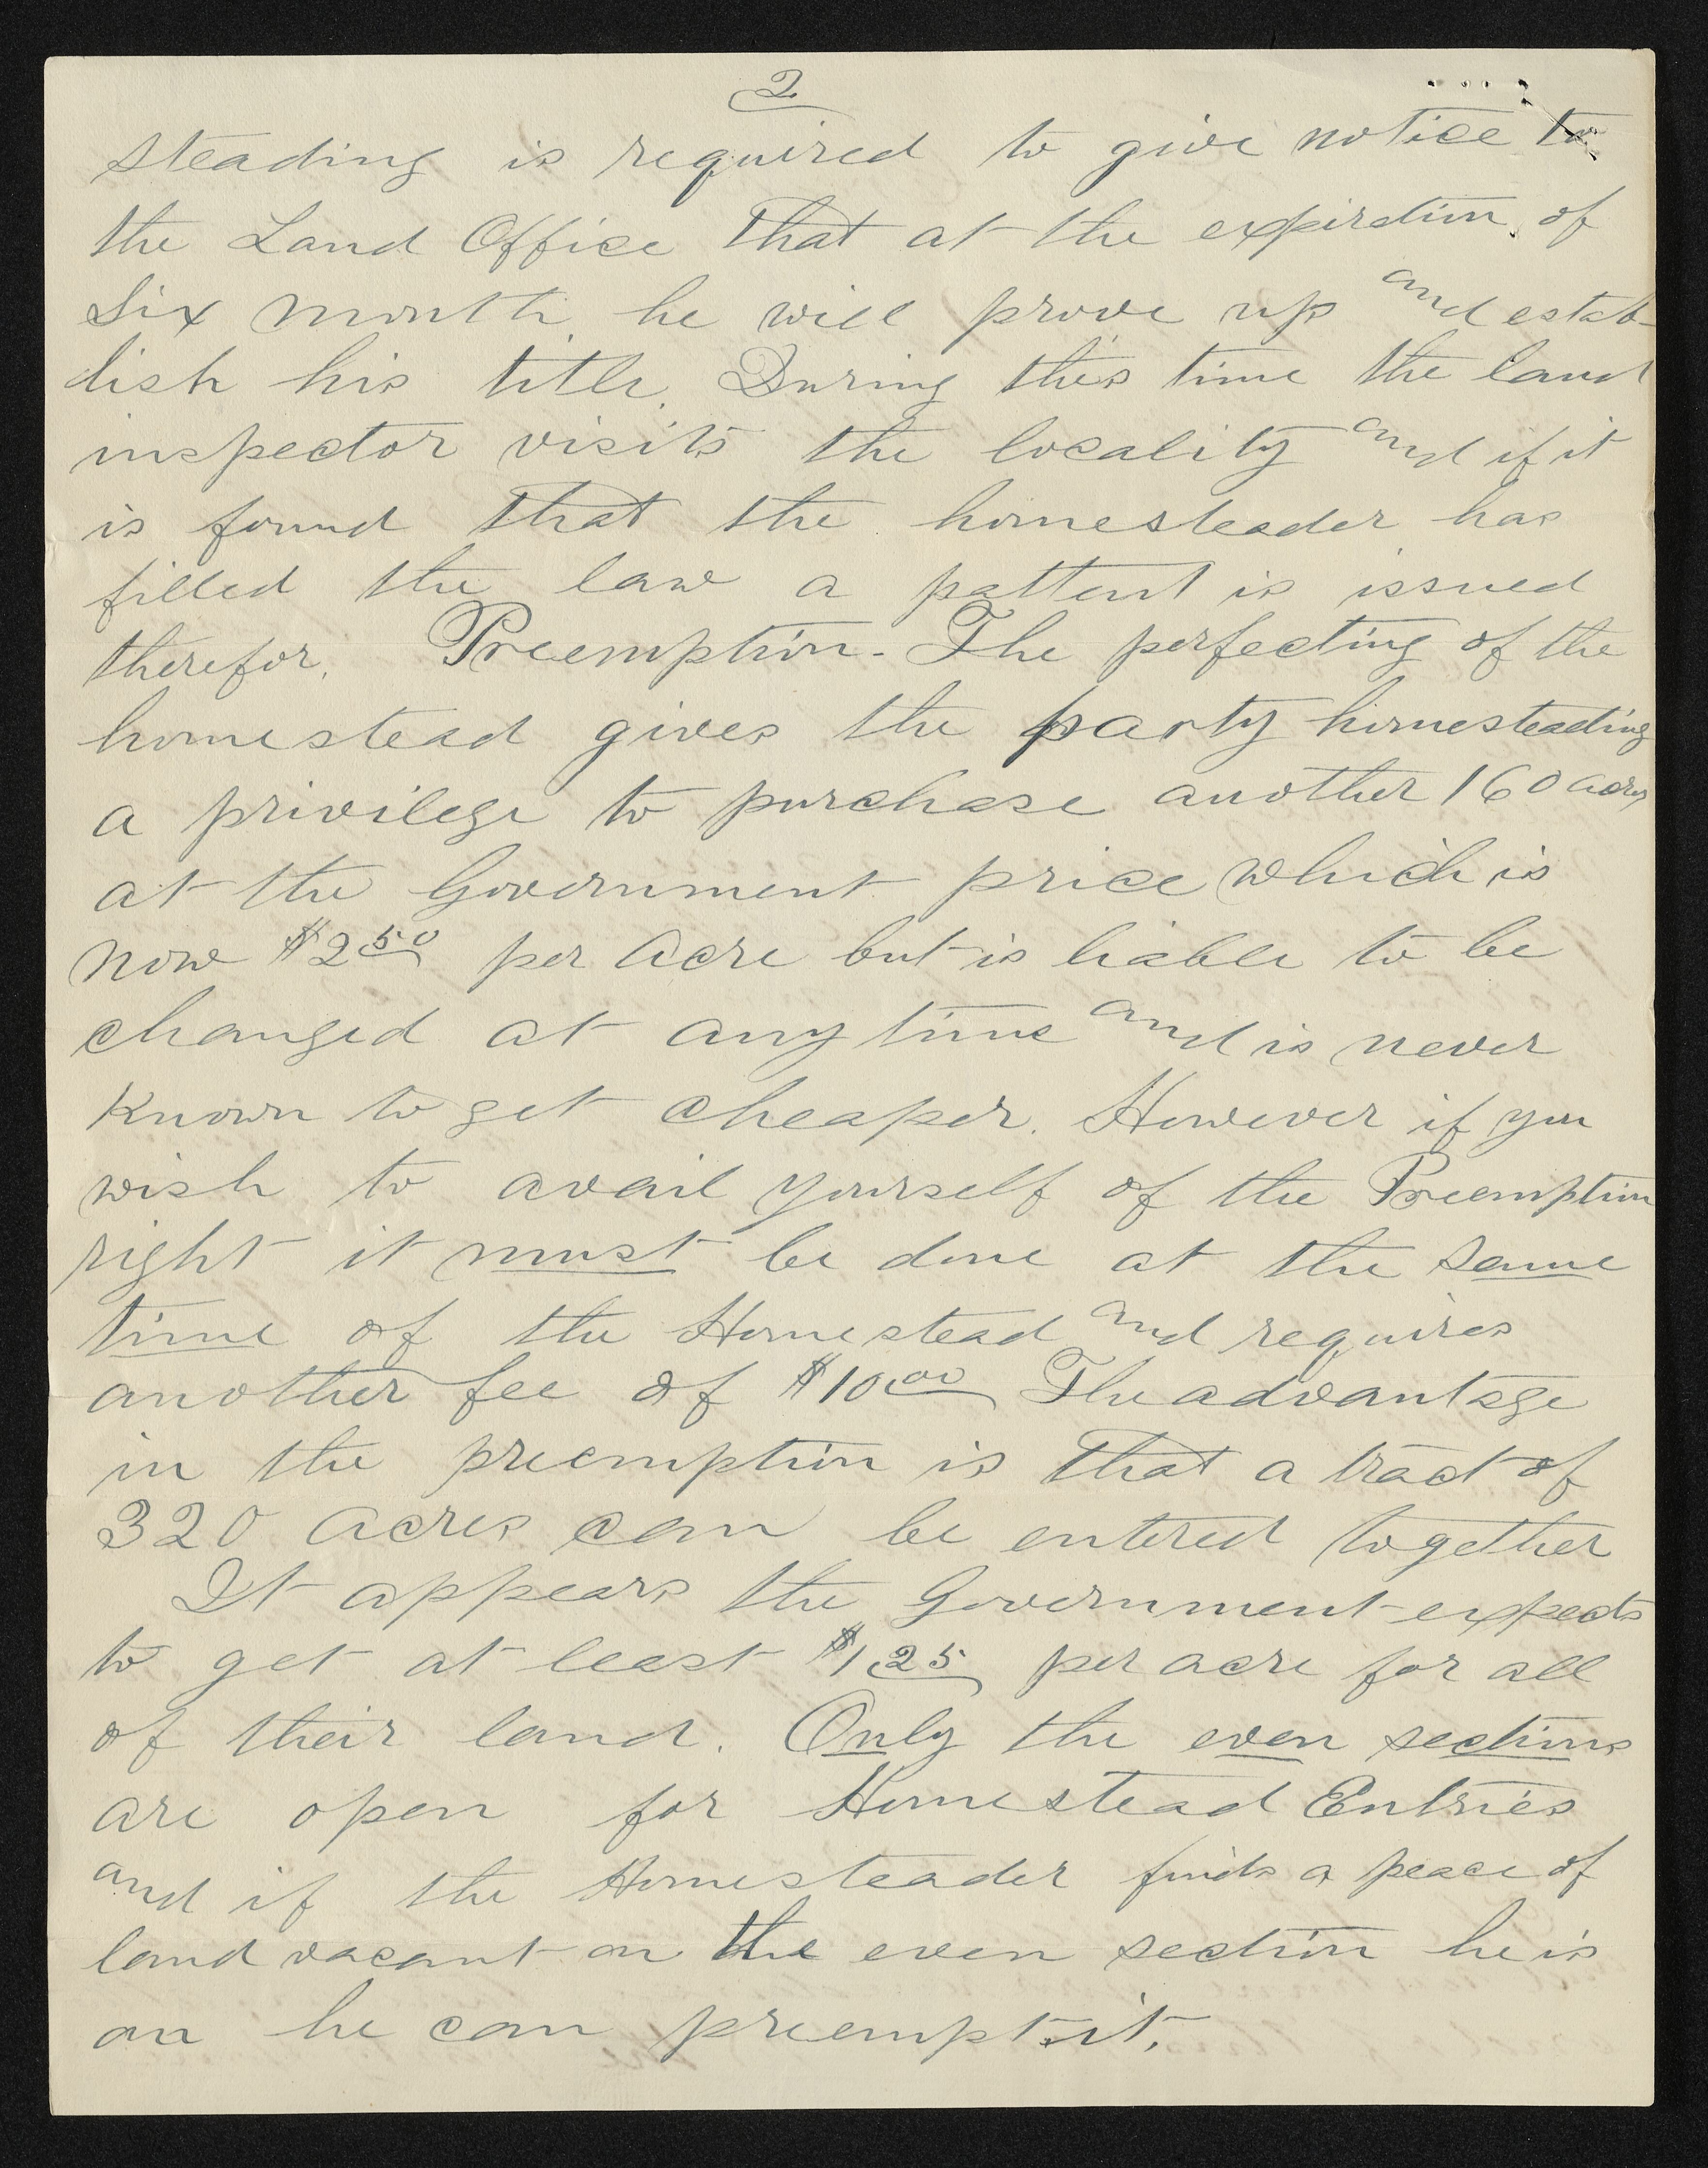 2
steading is required to give notice to
the Land Office that at the expiration of
Six month he will prove up and estab-
lish his title. During this time the land
inspector visits the locality and if it
is found that the homesteader has
filled the law a pattent is issued
therefor. Preemption - The perfecting of the
homestead gives the party homesteading
a privilege to purchase another 160 acres
at the Government price which is
now $2 50 per Acre but is liable to be
changed at any time and is never
known to get cheaper. However if you
wish to avail yourself of the Preemption
right it must be done at the same
time of the Homestead and requires
another fee of $10.00 The advantage
in the preemption is that a tract of
320 Acres can be entered together
It appears the Government expects
to get at least $1.25 per acre for all
of their land. Only the even sections
are open for Homestead Entries
and if the Homesteader finds a peace of
land vacant on the even section he is
on he can preempt it.